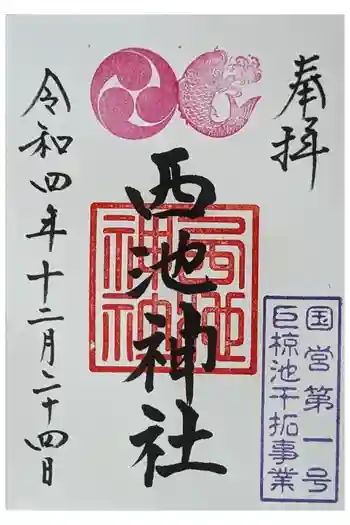 奉拝
西池神社
令和四年十二月二十四日
国営第一号
巨椋池干拓事業